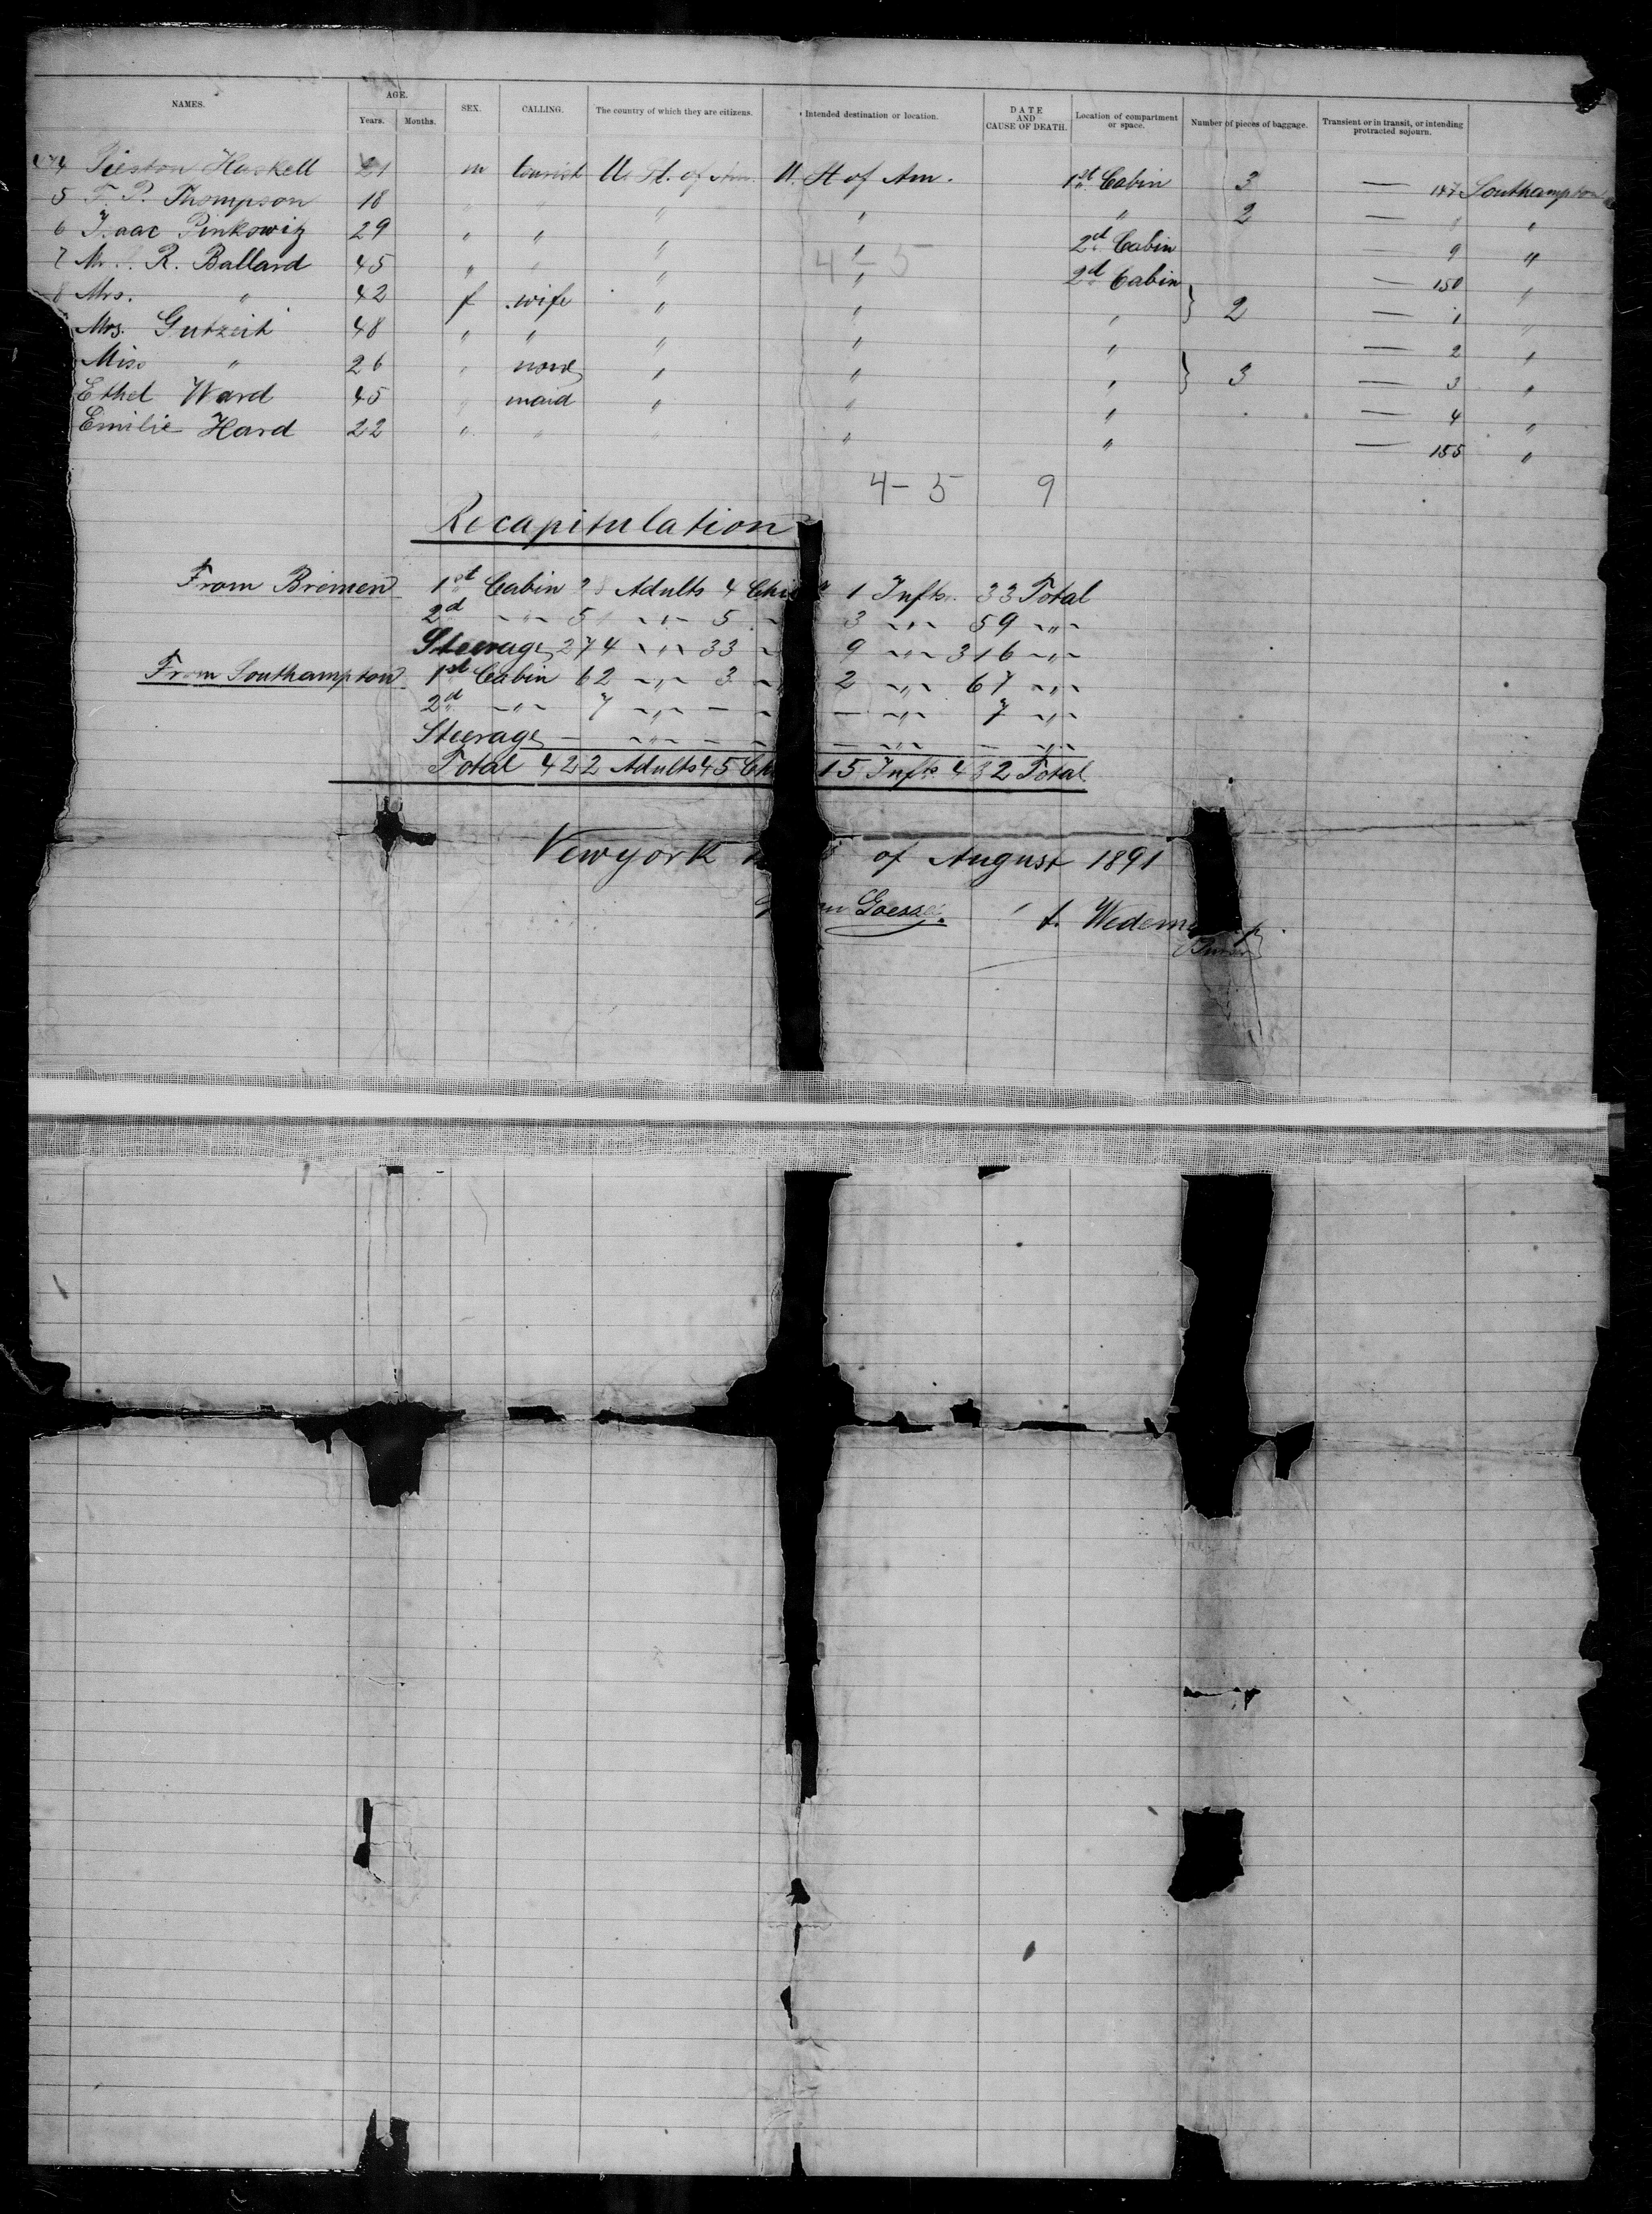 NAMES. AGE. Years. Months. SEX. CALLING. The country of which they are citizens. Intended destination or location. DATE AND CAUSE OF DEATH. Location of compartment or space. Number of pieces of baggage. Transient or in transit, or intending protracted sojourn.
474 Haskell 21 m tourist U. St. of Am. U. St of Am. 1st Cabin 3 — 147 Southampton
5 F. P. Thompson 18 " " " " " 2 — "
6 Isaac Pinkowitz 29 " " " " 2d Cabin 9 "
7 Mr. R. Ballard 45 " " " " 2d Cabin — 150 "
8 Mrs. " 42 f wife " " " } 2 — 1 "
Mrs. Gutzeit 48 " " " " " — 2 "
Miss " 26 " none " " " } 3 — 3 "
Ethel Ward 45 " maid " " " — 4 "
Emilie Hard 22 " " " " " — 155 "
4-5
4-5 9
Recapitulation
From Bremen 1st Cabin Adults 4 1 Infts. 33 Total
2d -"- 51 -"- 5 3 -"- 59 -"-
Steerage 274 -"- 33 9 -"- 316 -"-
From Southampton 1st Cabin 62 -"- 3 2 -"- 67 -"-
2d -"- 7 -"- — — -"- 7 -"-
Steerage — -"- — — -"- — -"-
Total 422 Adults 45 15 Infts 432 Total
Newyork of August 1891